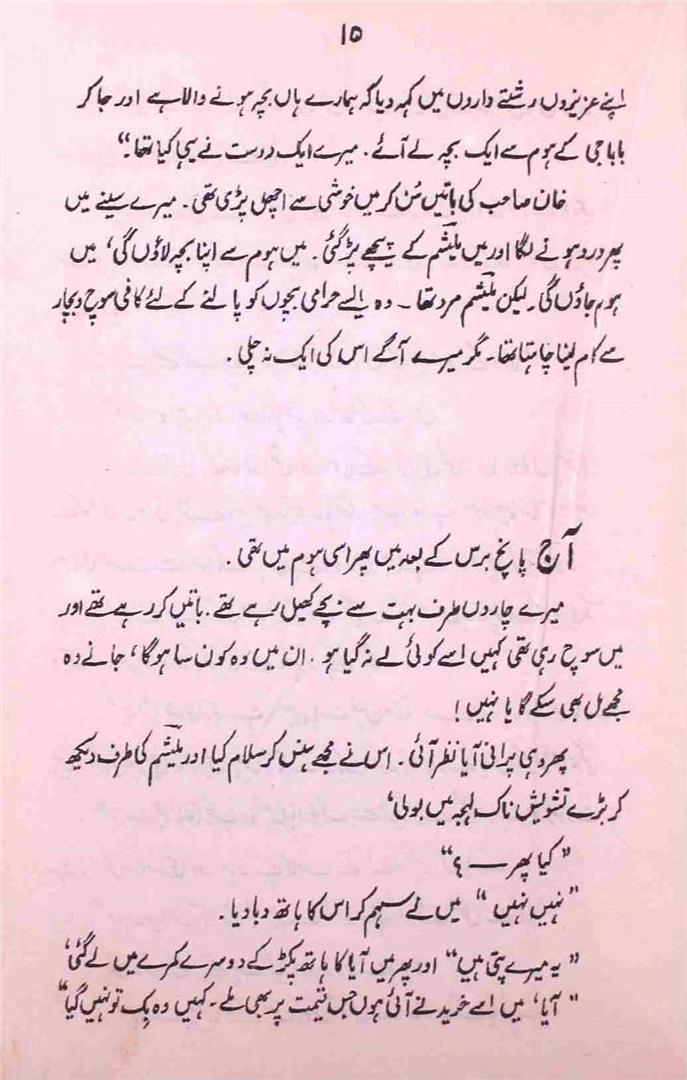 ۱۵
اپنے عزیزوں رشتے داروں میں کہہ دیا کہ ہمارے ہاں بچہ ہونے والا ہے اور جا کر
بابا جی کے ہوم سے ایک بچہ لے آئے۔ میرے ایک دوست نے یہی کیا تھا۔“
خان صاحب کی باتیں سُن کر میں خوشی سے اچھل پڑی تھی۔ میرے سینے میں
پھر درد ہونے لگا اور میں ملیشم کے پیچھے پڑ گئی۔ میں ہوم سے اپنا بچہ لاؤں گی، میں
ہوم جاؤں گی۔ لیکن ملیشم مرد تھا۔ وہ ایسے حرامی بچوں کو پالنے کے لئے کافی سوچ وبچار
سے کام لینا چاہتا تھا۔ مگر میرے آگے اس کی ایک نہ چلی۔
آج پانچ برس کے بعد میں پھر اسی ہوم میں تھی۔
میرے چاروں طرف بہت سے بچے کھیل رہے تھے۔ باتیں کر رہے تھے اور
میں سوچ رہی تھی کہیں اسے کوئی لے نہ گیا ہو۔ ان میں وہ کون سا ہوگا، جانے وہ
مجھے مل بھی سکے گا یا نہیں!
پھر وہی پرانی آیا نظر آئی۔ اس نے مجھے ہنس کر سلام کیا اور ملیشم کی طرف دیکھ
کر بڑے تشویش ناک لہجہ میں بولی،
”کیا پھر — ؟“
”نہیں نہیں“ میں نے سہم کر اس کا ہاتھ دبا دیا۔
”یہ میرے پتی ہیں“ اور پھر میں آیا کا ہاتھ پکڑ کے دوسرے کمرے میں لے گئی،
”آیا، میں اسے خریدنے آئی ہوں جس قیمت پر بھی ملے۔ کہیں وہ بِک تو نہیں گیا“